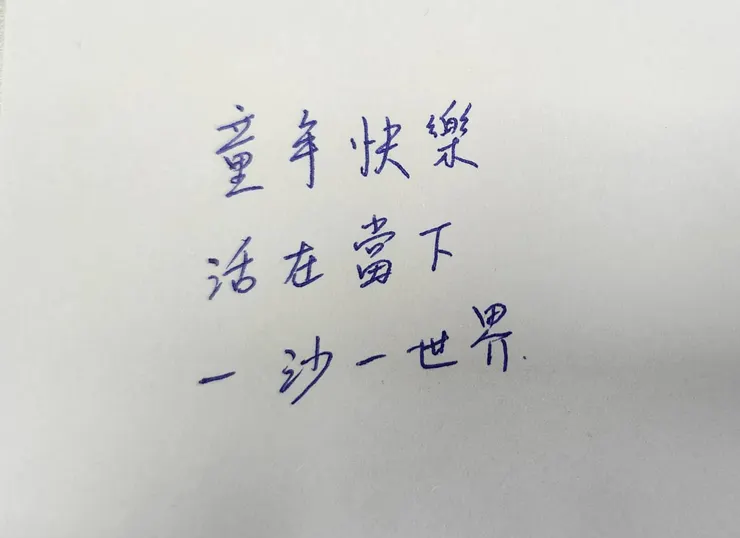 童年快樂
活在當下
一沙一世界.